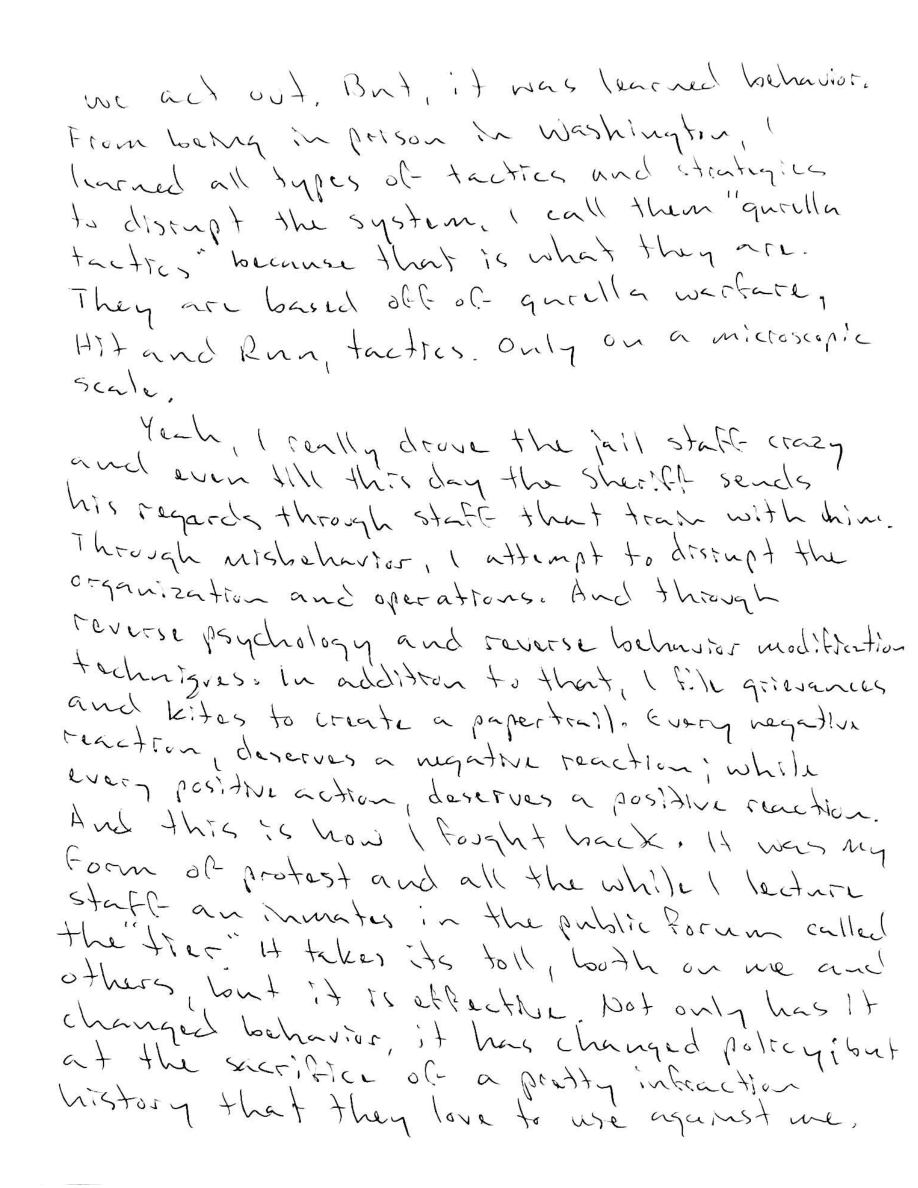 we act out. But, it was learned behavior.
From being in prison in Washington, I
learned all types of tactics and strategies
to disrupt the system. I call them "gurella
tactics" because that is what they are.
They are based off of gurella warfare,
Hit and Run, tactics. Only on a microscopic
scale.
Yeah, I really drove the jail staff crazy
and even till this day the Sheriff sends
his regards through staff that train with him.
Through misbehavior, I attempt to disrupt the
organization and operations. And through
reverse psychology and reverse behavior modification
techniques. In addition to that, I file grievances
and kites to create a papertrail. Every negative
reaction, deserves a negative reaction; while
every positive action, deserves a positive reaction.
And this is how I fought back. It was my
form of protest and all the while I lecture
staff an inmates in the public forum called
the "tier." It takes its toll, both on me and
others, but it is effective. Not only has it
changed behavior, it has changed policy; but
at the sacrifice of a pretty infraction
history that they love to use against me.